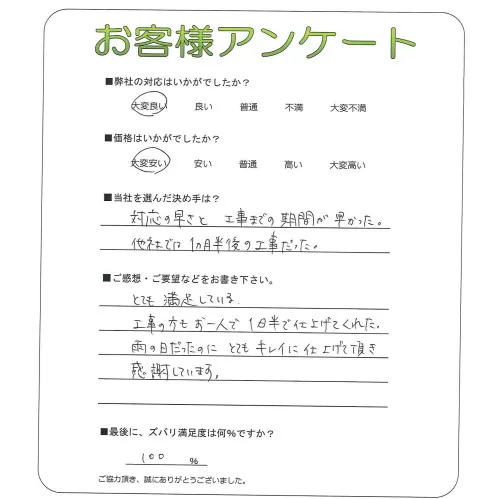 お客様アンケート
■弊社の対応はいかがでしたか？
大変良い 良い 普通 不満 大変不満
■価格はいかがでしたか？
大変安い 安い 普通 高い 大変高い
■当社を選んだ決め手は？
対応の早さと 工事までの期間が早かった。
他社では1カ月半後の工事だった。
■ご感想・ご要望などをお書き下さい。
とても 満足している。
工事の方も お一人で 1日半で仕上げてくれた。
雨の日だったのに とても キレイに 仕上げて頂き
感謝しています。
■最後に、ズバリ満足度は何%ですか？
100 %
ご協力頂き、誠にありがとうございました。